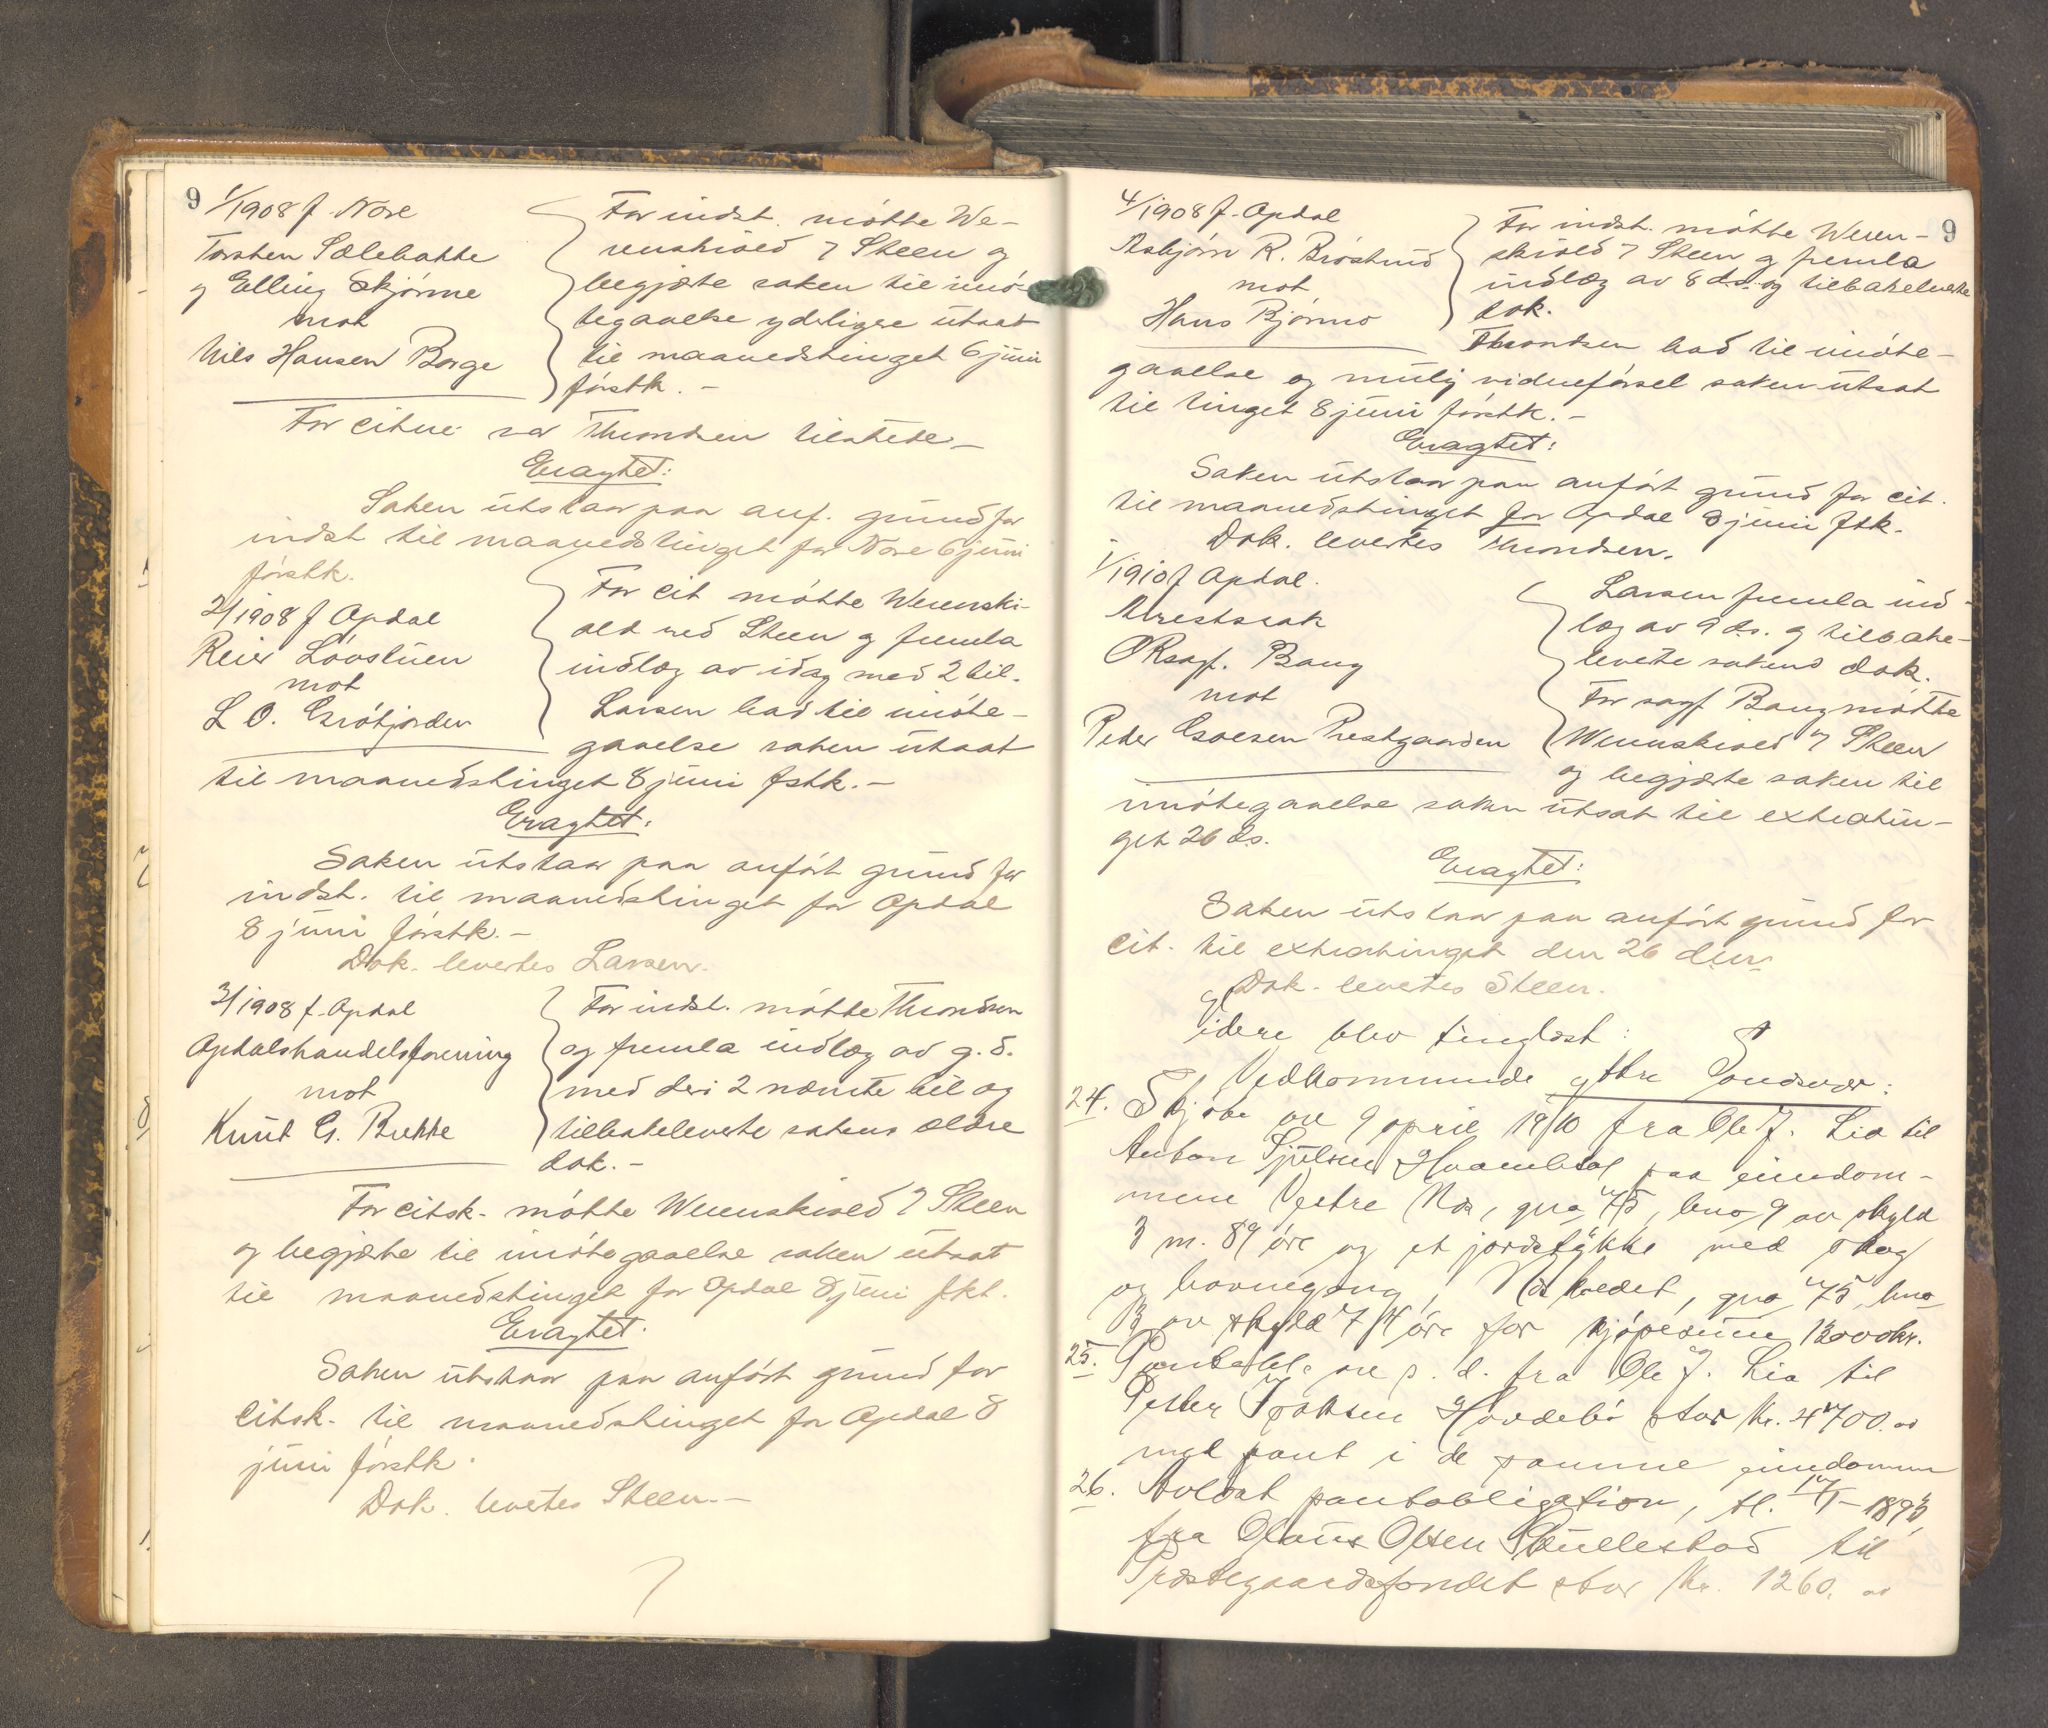 9
1/1908 f Nore
Torsten Sælebakke
og Elling Skjönne
mot
Nils Hansen Borge
For indst. mötte We-
renskiold v Steen og
begjærte saken til imö-
tegaaelse yderligere utsat
til maanedstinget 6 juni
förstk. -
For citne var Throndsen tilstede -
Eragtet:
Saken utstaar paa anf. grund for
indst til maanedstinget for Nore 6 juni
förstk.
2/1908 f Opdal
Reier Lövstuen
mot
L O. Gröfjorden
For cit mötte Werenski-
old ved Steen og fremla
indlæg av idag med 2 bil.
Larsen bad til imöte-
gaaelse saken utsat
til maanedstinget 8 juni fstk. -
Eragtet:
Saken utstaar paa anfört grund for
indst. til maanedstinget for Opdal
8 juni förstk. -
Dok. levertes Larsen.
3/1908 f. Opdal
Opdalshandelsforening
mot
Knut G. Brekke
For indst. mötte Throndsen
og fremla indlæg av g. d.
med deri 2 nævnte bil og
tilbakeleverte sakens ældre
dok. -
For citsk. mötte Werenskiold v Steen
og begjærte til imötegaaelse saken utsat
til maanedstinget for Opdal 8 juni fkt.
Eragtet.
Saken utstaar paa anfört grund for
citsk. til maanedstinget for Opdal 8
juni förstk.
Dok. levertes Steen. -
9
4/1908 f. Opdal
Asbjörn R. Bröstrud
mot
Hans Björnno
For indst. mötte Weren-
skiold v Steen og fremla
indlæg av 8 ds. og tilbakeleverte
dok.
Throndsen bad til imöte-
gaaelse og mulig vidneförsel saken utsat
til tinget 8 juni förstk. -
Eragtet:
Saken utstaar paa anfört grund for cit.
til maanedstinget for Opdal 8 juni fstk.
Dok. levertes Throndsen.
1/1910 f Opdal.
Arrestsak
ORsagf. Bang
mot
Peder Prestgaarden
Larsen fremla ind-
læg av 9 ds. og tilbake-
leverte sakens dok.
For sagf Bang mötte
Werenskiold v Steen
og begjærte saken til
imötegaaelse saken utsat til extratin-
get 26 ds.
Eragtet:
Saken utstaar paa anfört grund for
cit. til extratinget den 26 ds
Dok. levertes Steen.
Videre blev tinglæst:
Vedkommende ytre Sandsvær:
24. Skjöte av 9 april 1910 fra Ole J. Lia til
Anton paa eiendom-
mene Vestre Næs, gno 75, bno 9 av skyld
3 m. 89 öre og et jordstykke med skog
og havnegang, gno 75, bno
13 av skyld öre for kjöpesum 13000 kr.
25. Pantobl. av s. d. fra Ole J. Lia til
Peder stor Kr. 4700.00
med pant i de samme eiendomme
26. Avlæst pantobligation, tl.
fra Olaus Olsen Skullestad til
Præstegaardsfondet stor Kr. 1260.00